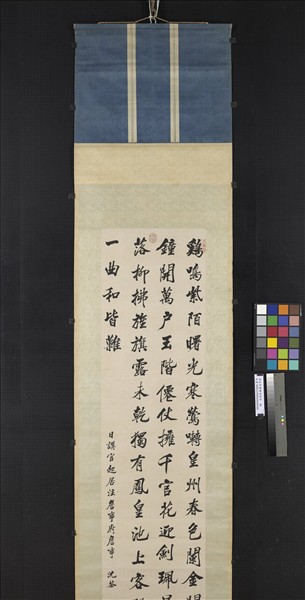 鷄鳴紫陌曙光寒鶯囀皇州春色闌金闕
鐘開萬户玉階僊仗擁千官花迎劍珮星
落柳拂旌旗露未乾獨有鳳皇池上客
一曲和皆難
日講官起居注詹事府詹事 沈荃